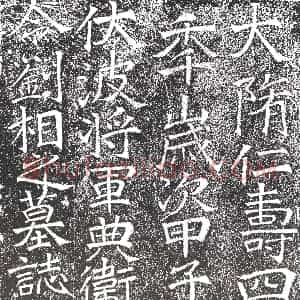 大隋仁壽四
秊歲次甲子
伏波將軍典衛
令劉相之墓誌